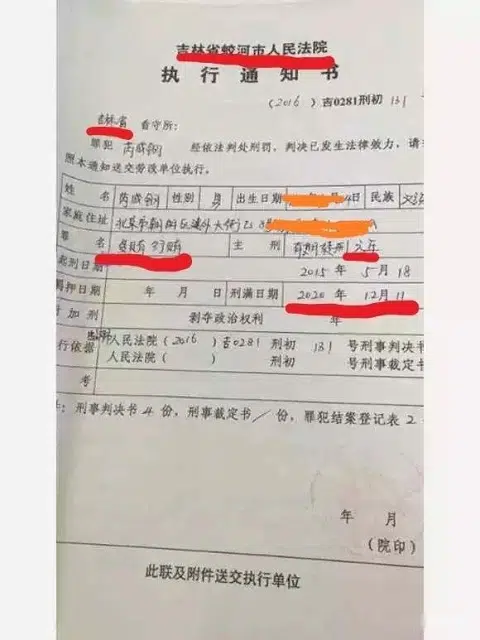 吉林省蛟河市人民法院
执行通知书
(2016)吉0281刑初 131
吉林省 看守所:
罪犯 芮成钢 经依法判处刑罚,判决已发生法律效力,请
照本通知送交劳改单位执行。
姓 名 芮成钢 性别 男 出生日期 4日 民族 汉
家庭住址 北京市朝阳区建外大街乙8号
罪 名 受贿 行贿 主 刑 有期徒刑 六年
起刑日期 2015 年 5 月 18
羁押日期 年 月 日 刑满日期 2020 年 12月 11
附加刑 剥夺政治权利 年
行依据 人民法院(2016)吉0281 刑初 131 号刑事判决书
人民法院( ) 刑初 号刑事裁定书
考
注:刑事判决书 4 份,刑事裁定书 / 份,罪犯结案登记表 2
年 月
(院印)
此联及附件送交执行单位